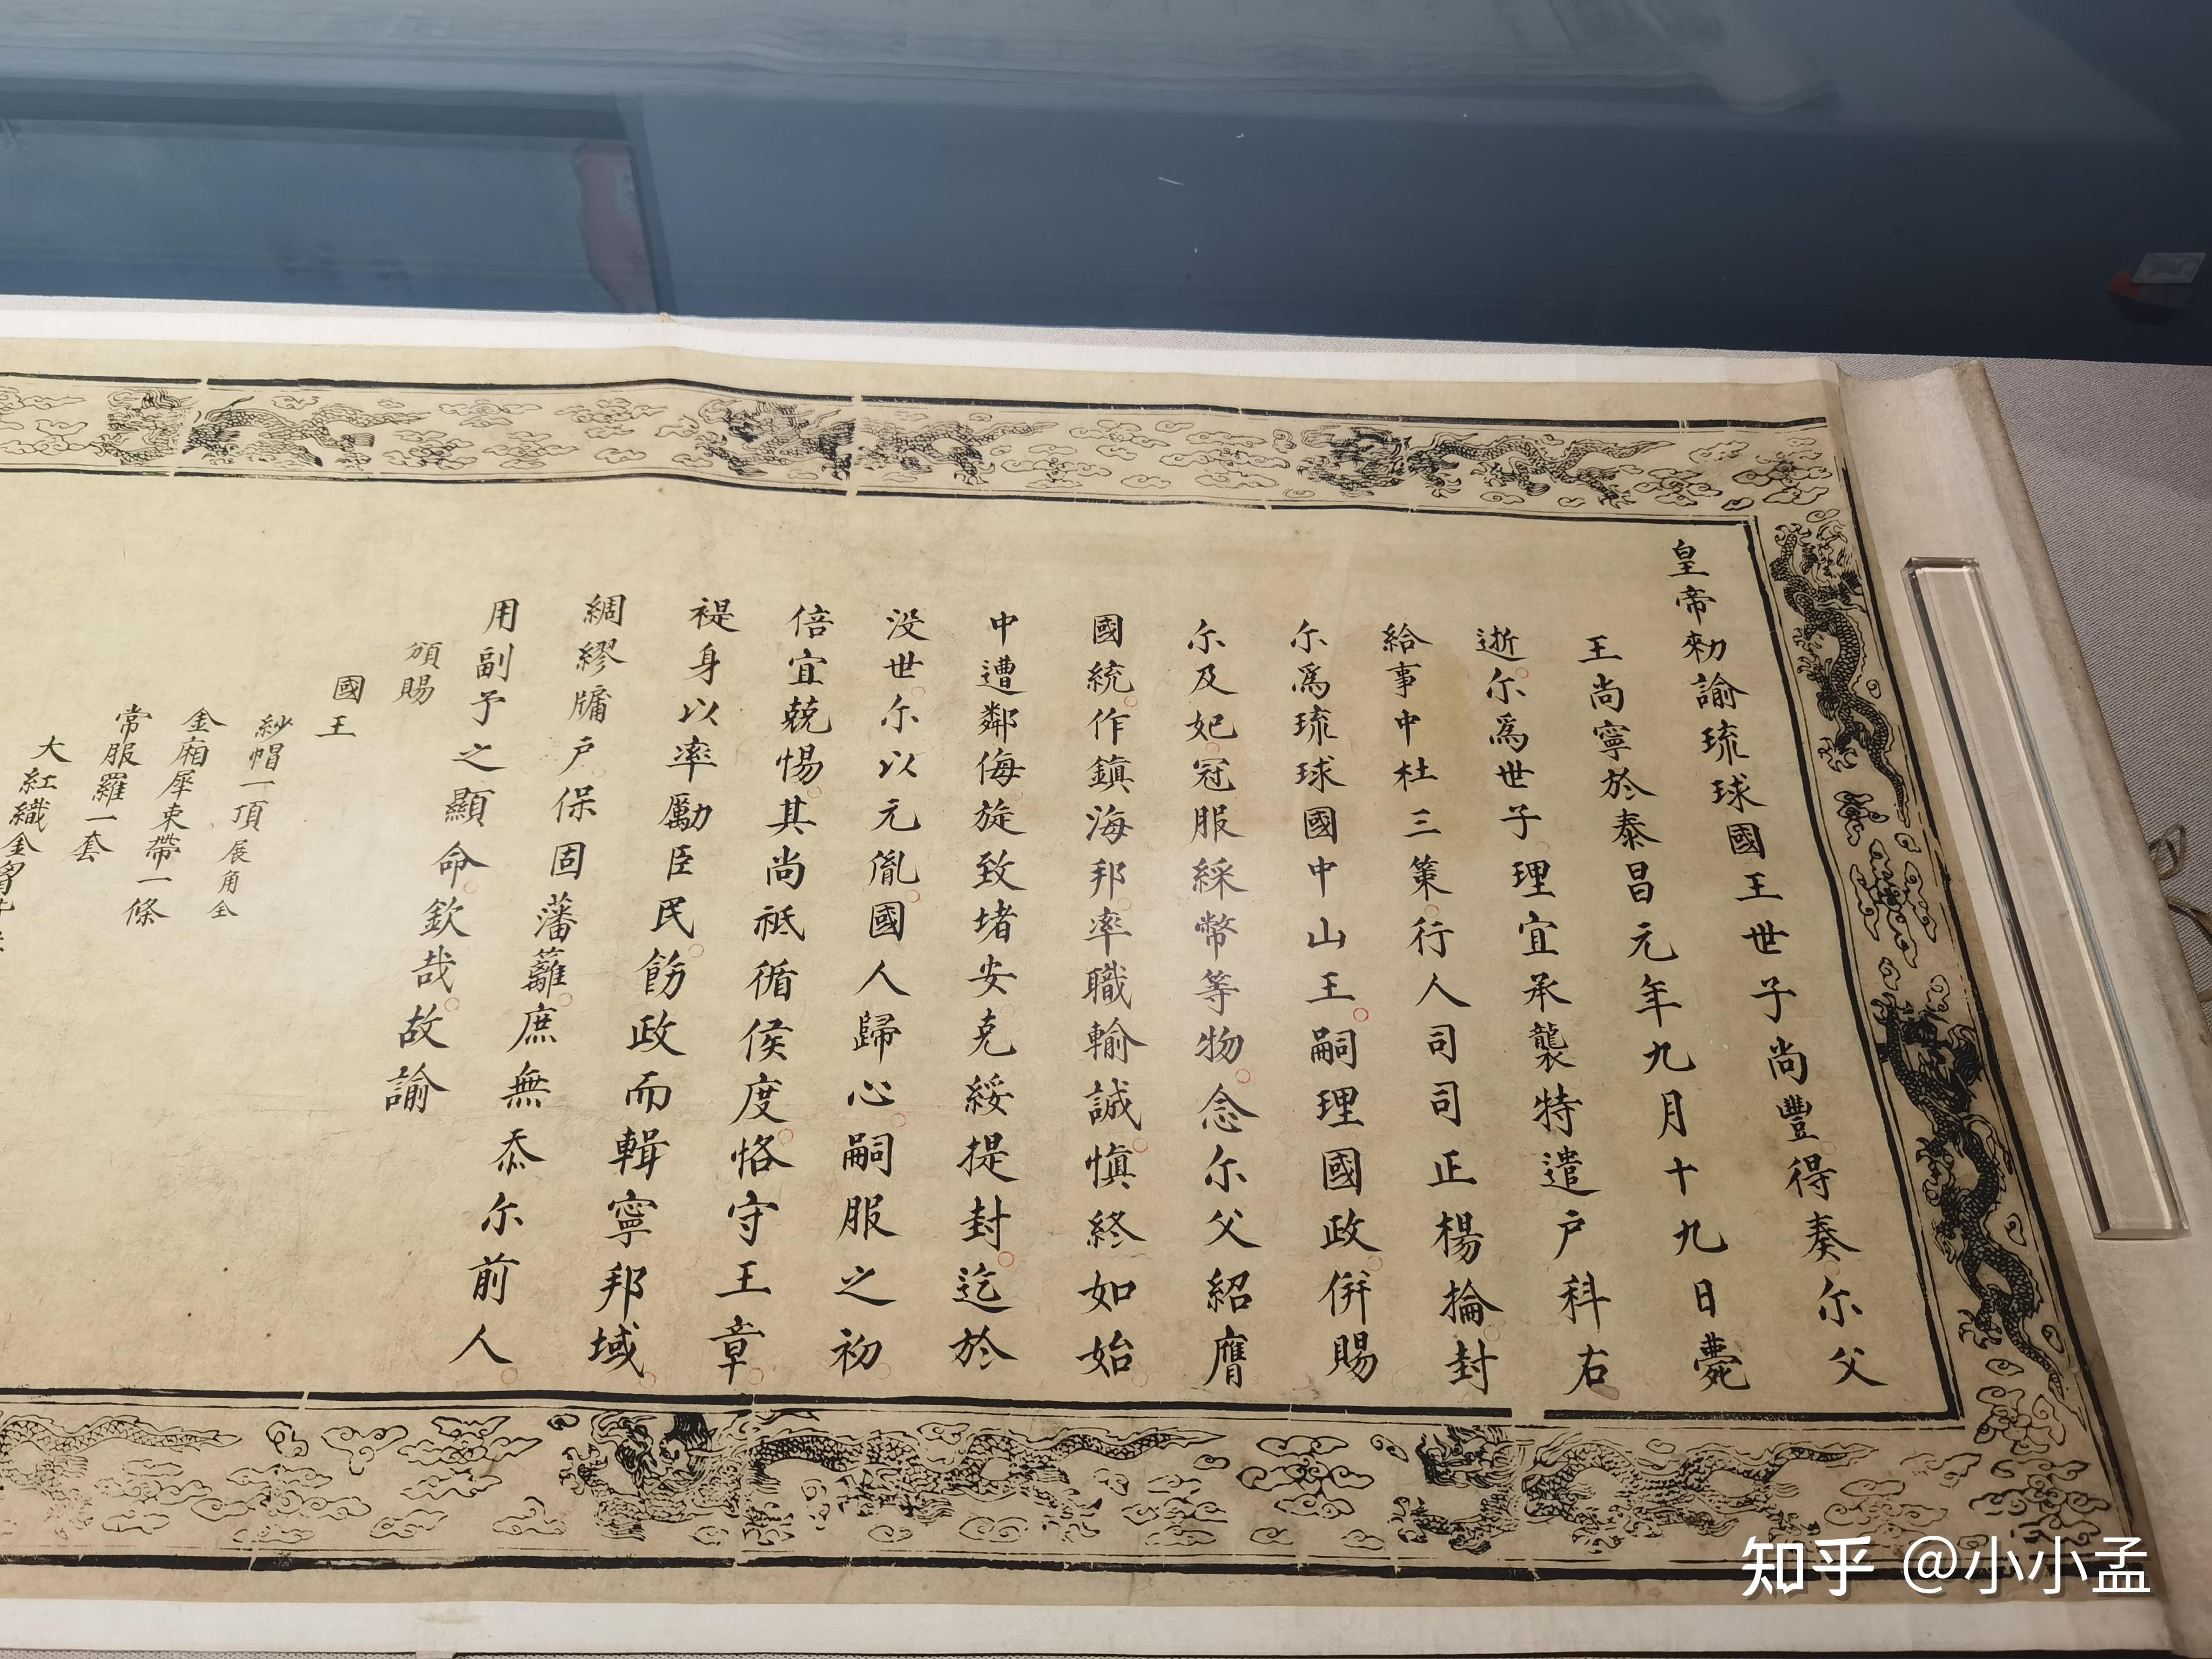 皇帝勑諭琉球國王世子尚豐得奏尓父
王尚寧於泰昌元年九月十九日薨
逝尓爲世子理宜承襲特遣户科右
給事中杜三策行人司司正楊掄封
尓爲琉球國中山王嗣理國政併賜
尓及妃冠服綵幣等物念尓父紹膺
國統作鎮海邦率職輸誠慎終如始
中遭鄰侮旋致堵安克綏提封迄於
没世尓以元胤國人歸心嗣服之初
倍宜兢惕其尚祗循侯度恪守王章
禔身以率勵臣民飭政而輯寧邦域
綢繆牖户保固藩籬庶無忝尓前人
用副予之顯命欽哉故諭
頒賜
國王
紗帽一頂展角全
金廂犀束帶一條
常服羅一套
大紅織金
知乎 @小小孟